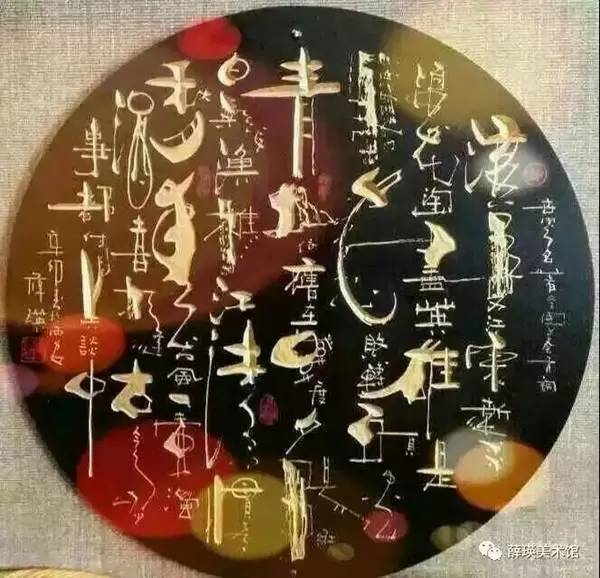 滚滚长江东逝水
浪花淘尽英雄是
非成败转头空
青山依旧在几度夕阳红
白发渔樵江渚上惯看
秋月春风一壶浊
酒喜相逢古今多少
事都付笑谈中
辛卯
薛瑛
薛瑛美术馆